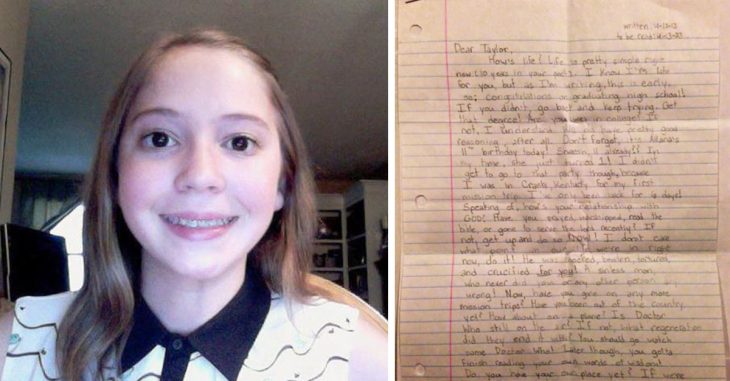 written: 4-13-13
to be read: 4-13-23
Dear Taylor,
How's life? Life is pretty simple right
now (10 years in your past). I know I'm late
for you, but as I'm writing, this is early,
so: congratulations on graduating high school!
If you didn't, go back and keep trying. Get
that degree! Are you in college? If
not, I understand. We do have pretty good
reasoning, after all. Don't forget, it's
11th birthday today! 11 already?? In
my time, she just turned 1! I didn't
get to go to that party though, because
I was in Cranks, Kentucky for my first
mission trip. I've only been back for 6 days!
Speaking of, how's your relationship with
GOD? Have you prayed, worshipped, read the
bible, or gone to serve the lord recently? If
not, get up and do so NOW! I don't care
what point in our life we're in right
now, do it! He was mocked, beaten, tortured,
and crucified for you! A sinless man,
who never did you or any other person
wrong! Now, have you gone on any more
mission trips? Have you been out of the country
yet? How about on a plane? Is Doctor
Who still on the air? If not, what regeneration
did they end it with? You should go watch
some Doctor Who! Later though, you gotta
finish reading your own words of wisdom!
Do you have your own place yet? If we're